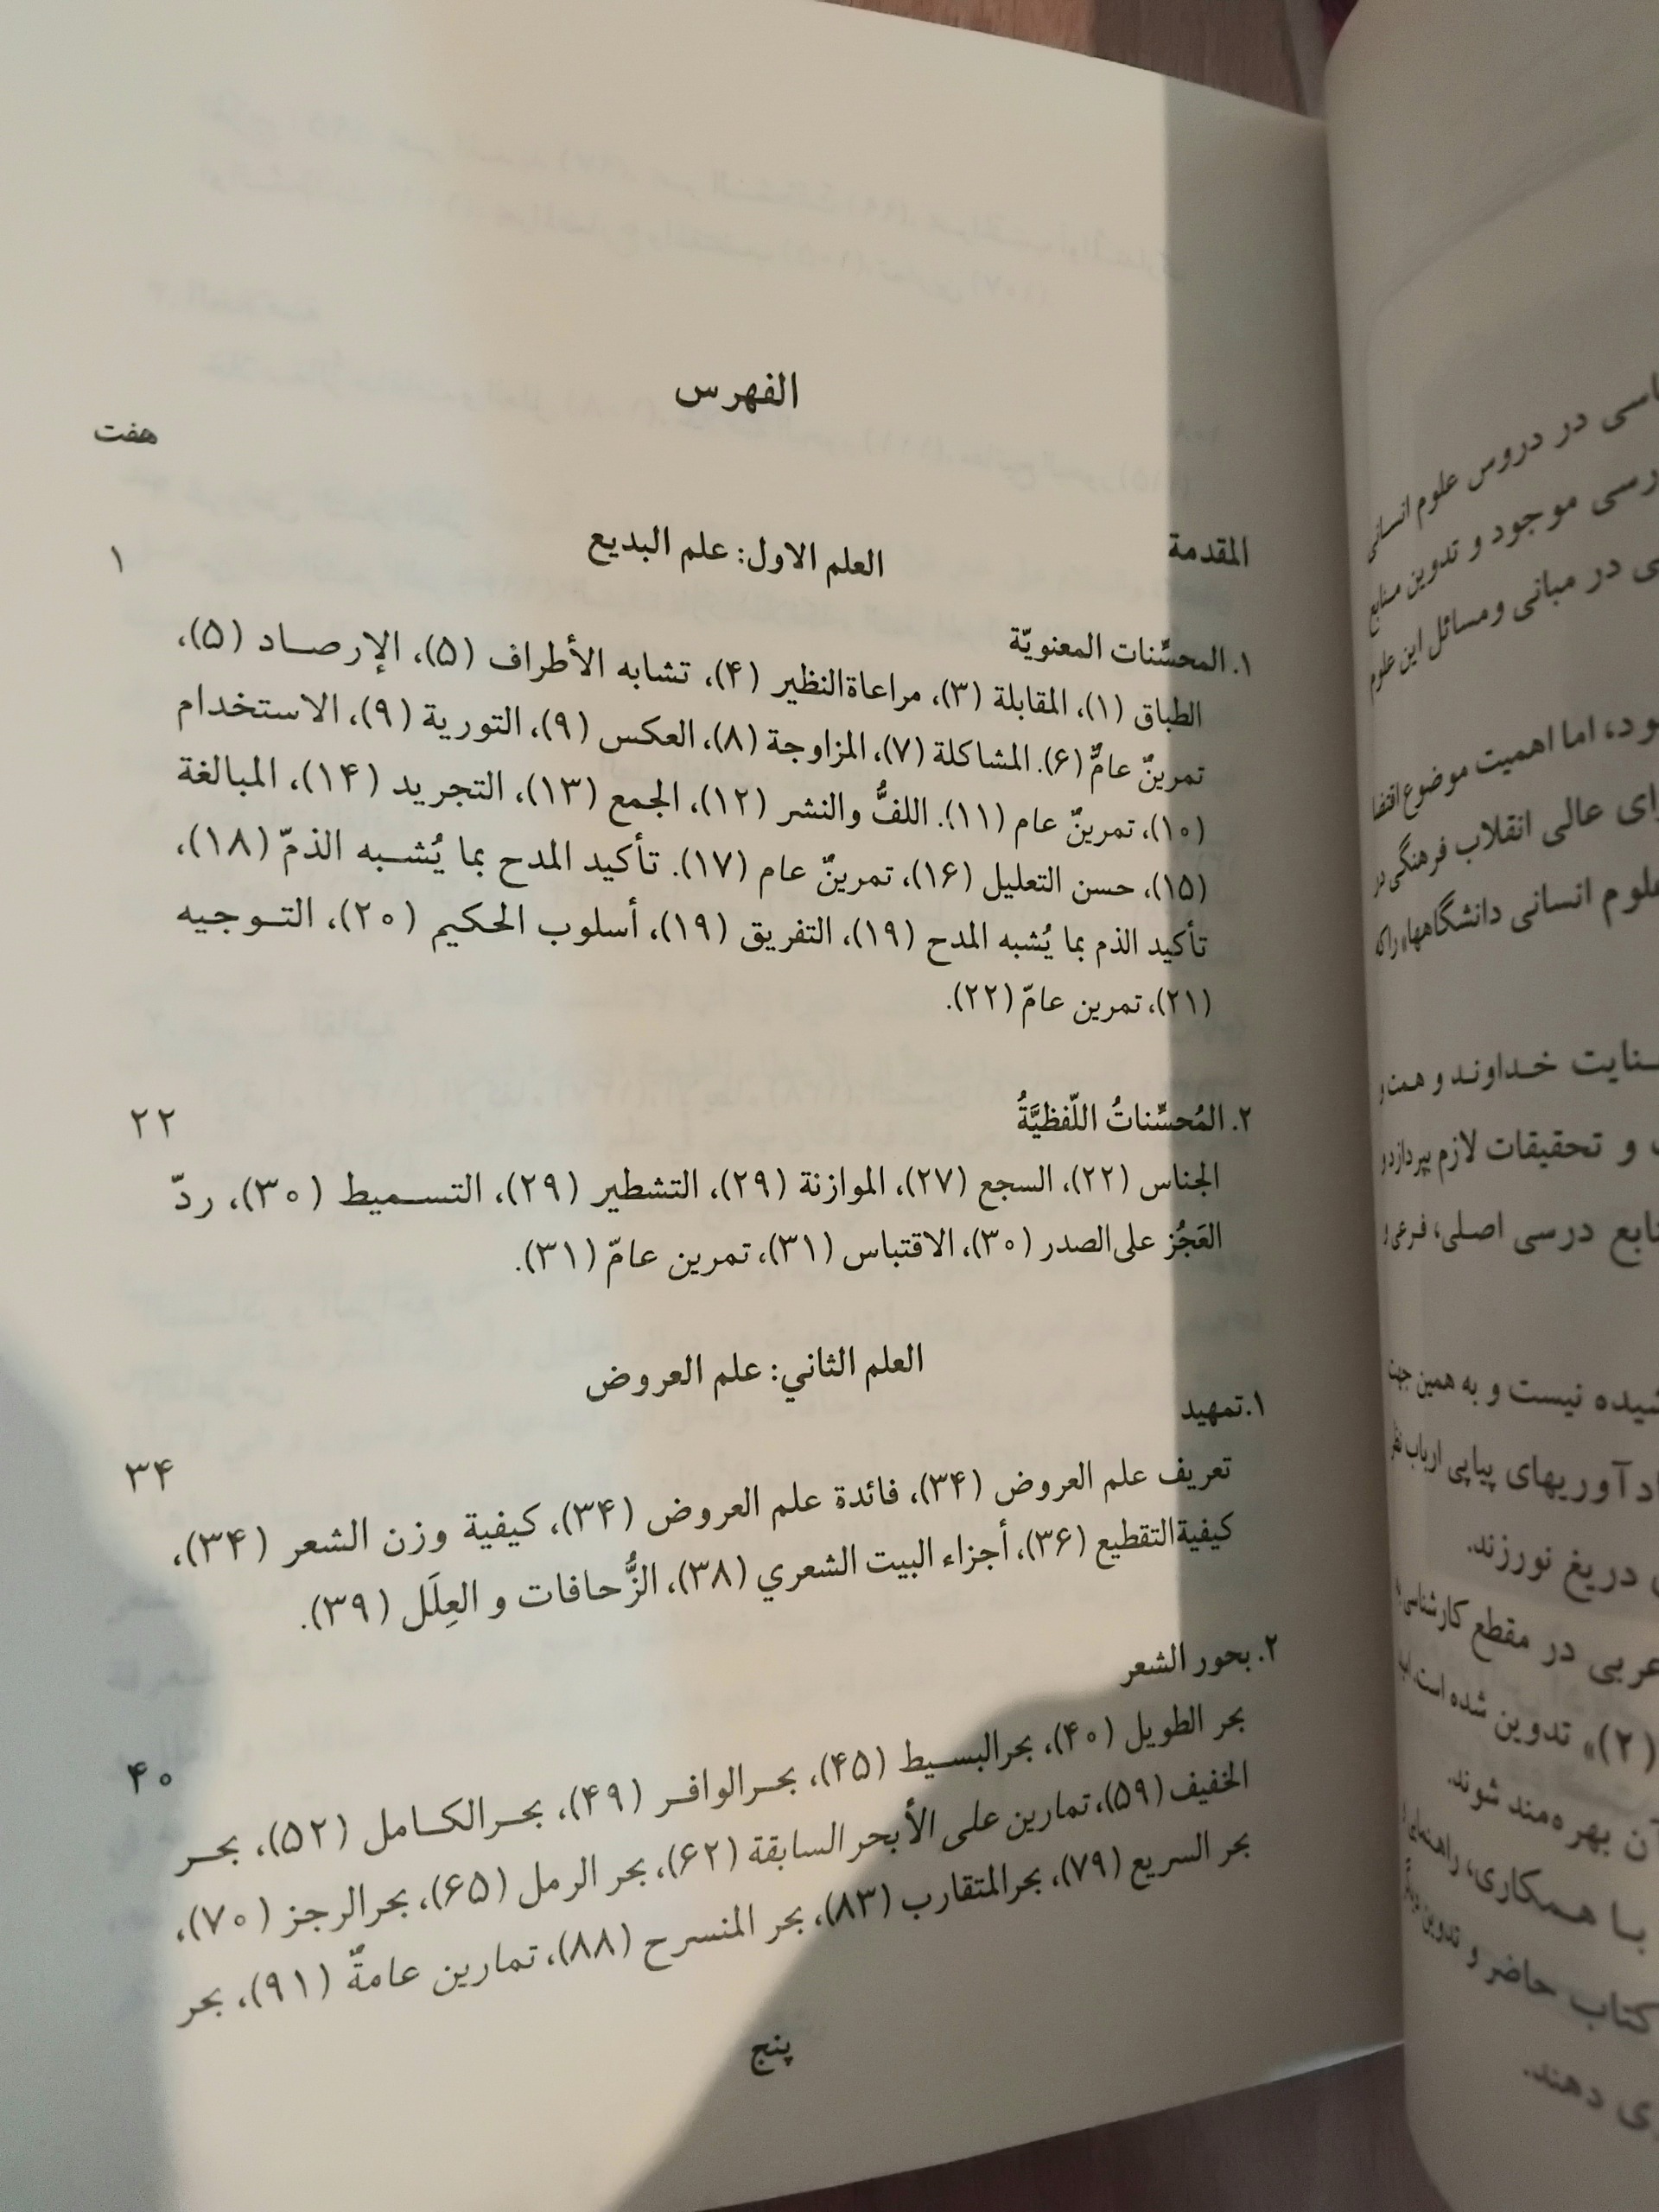 الفهرس
المقدمة هفت
العلم الاول: علم البديع
۱. المحسّنات المعنويّة ۱
الطباق (۱)، المقابلة (۳)، مراعاةالنظير (۴)، تشابه الأطراف (۵)، الإرصاد (۵)،
تمرينٌ عامٌّ (۶). المشاكلة (۷)، المزاوجة (۸)، العكس (۹)، التورية (۹)، الاستخدام
(۱۰)، تمرينٌ عام (۱۱). اللفُّ والنشر (۱۲)، الجمع (۱۳)، التجريد (۱۴)، المبالغة
(۱۵)، حسن التعليل (۱۶)، تمرينٌ عام (۱۷). تأكيد المدح بما يُشبه الذمّ (۱۸)،
تأكيد الذم بما يُشبه المدح (۱۹)، التفريق (۱۹)، أسلوب الحكيم (۲۰)، التوجيه
(۲۱)، تمرين عامّ (۲۲).
۲. المُحسِّناتُ اللّفظيَّةُ ۲۲
الجناس (۲۲)، السجع (۲۷)، الموازنة (۲۹)، التشطير (۲۹)، التسميط (۳۰)، ردّ
العَجُز علىالصدر (۳۰)، الاقتباس (۳۱)، تمرين عامّ (۳۱).
العلم الثاني: علم العروض
۱.تمهيد ۳۴
تعريف علم العروض (۳۴)، فائدة علم العروض (۳۴)، كيفية وزن الشعر (۳۴)،
كيفيةالتقطيع (۳۶)، أجزاء البيت الشعري (۳۸)، الزُّحافات و العِلَل (۳۹).
۲. بحور الشعر ۴۰
بحر الطويل (۴۰)، بحرالبسيط (۴۵)، بحرالوافر (۴۹)، بحرالكامل (۵۲)، بحر
الخفيف (۵۹)، تمارين على الأبحر السابقة (۶۲)، بحر الرمل (۶۵)، بحرالرجز (۷۰)،
بحر السريع (۷۹)، بحرالمتقارب (۸۳)، بحر المنسرح (۸۸)، تمارين عامةٌ (۹۱)، بحر
پنج
در دروس علوم انسانی
موجود و تدوین منابع
در مبانی و مسائل این علوم
اما اهمیت موضوع اقتضا
عالی انقلاب فرهنگی در
علوم انسانی دانشگاهها» را که
خداوند و همت و
و تحقیقات لازم بپردازد و
درسی اصلی، فرعی و
نیست و به همین جهت
پیاپی ارباب نظر
دریغ نورزند.
در مقطع کارشناسی
(۲)» تدوین شده است.
بهره‌مند شوند.
با همکاری، راهنمایی
کتاب حاضر و تدوین
دهند.